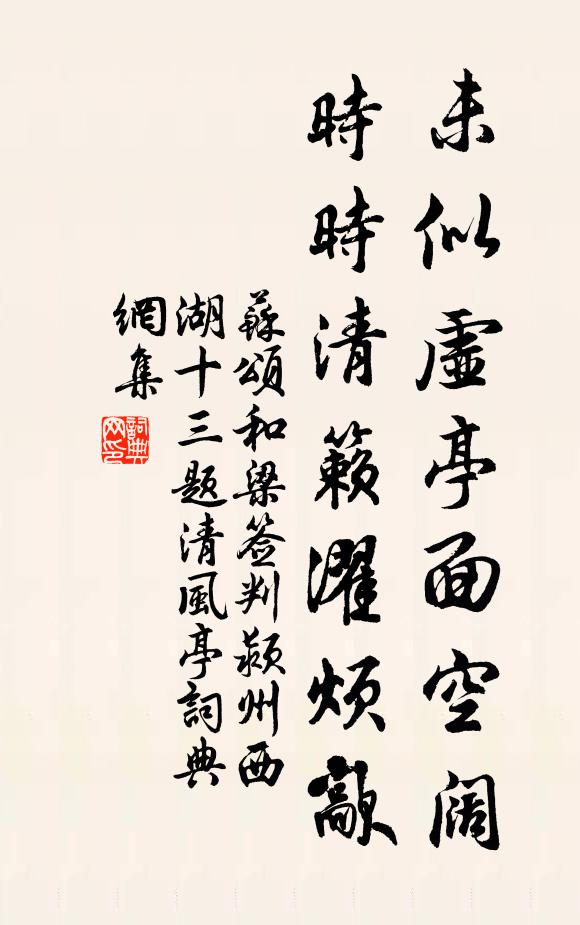 未似虛亭面空阔
時時清籟濯煩歊
蘇頌和梁签判颍州西
湖十三题清風亭詞典
網集
詞典
网印